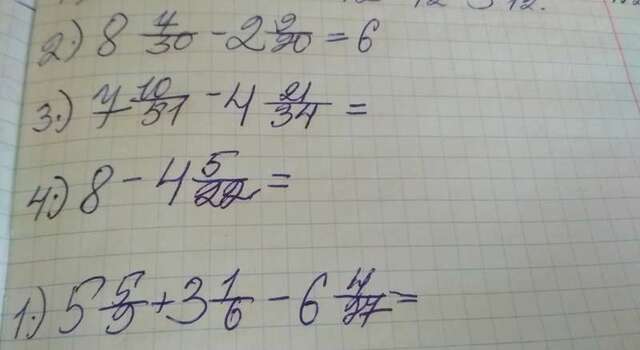 2.) 8 4/30 - 2 2/20 = 6
3.) 7 10/51 - 4 21/34 =
4.) 8 - 4 5/22 =
1.) 5 5/9 + 3 1/6 - 6 4/27 =